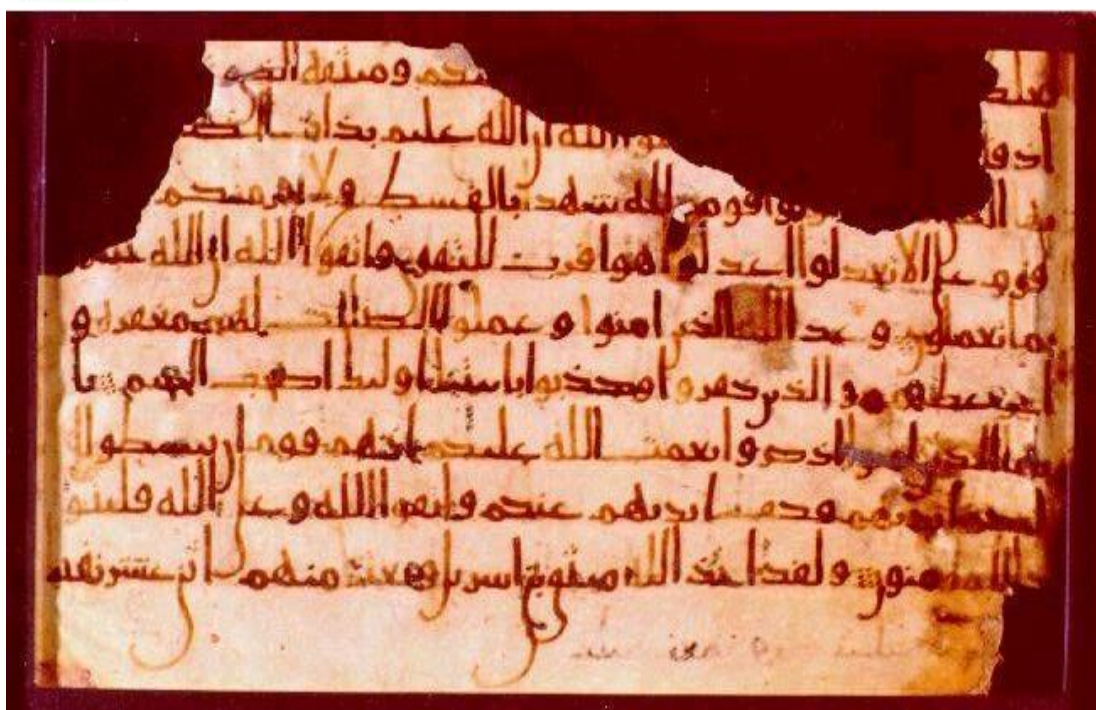 عليكم وميثقه الذي
الله ان الله عليم بذات
قومين لله شهدا بالقسط ولا يجرمنكم
قوم على الا تعدلوا اعدلوا هو اقرب للتقوى واتقوا الله ان الله
بما تعملون وعد الله الذين امنوا وعملوا الصلحت لهم مغفرة و
اجر عظيم والذين كفروا وكذبوا بايتنا اولئك اصحب الجحيم يا
يها الذين امنوا اذكروا نعمت الله عليكم اذ هم قوم ان يبسطوا ا
ليكم ايديهم فكف ايديهم عنكم واتقوا الله وعلى الله فليتو
كل المومنون ولقد اخذ الله ميثق بني اسريل وبعثنا منهم اثني عشر نقيبا